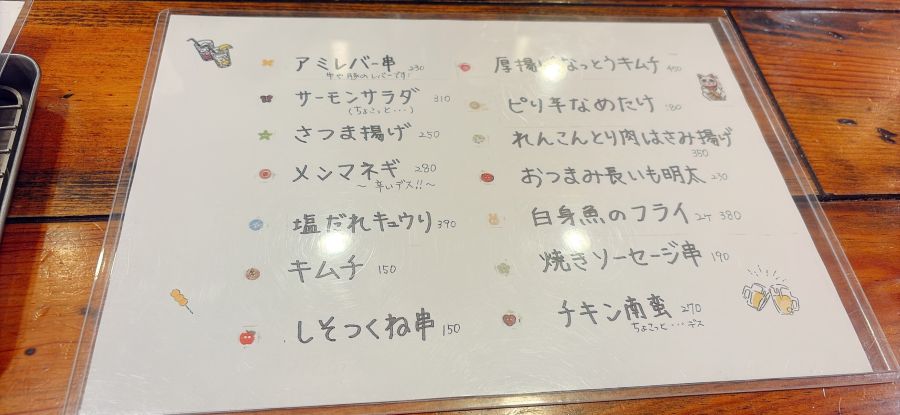 アミレバー串 230
牛や豚のレバーです!
サーモンサラダ 310
(ちょこっと・・・)
さつま揚げ 250
メンマネギ 280
〜辛いデス!!〜
塩だれキュウリ 390
キムチ 150
しそつくね串 150
厚揚げなっとうキムチ 450
ピリ辛なめたけ 180
れんこんとり肉はさみ揚げ
350
おつまみ長いも明太 230
白身魚のフライ 2ケ 380
焼きソーセージ串 190
チキン南蛮 270
ちょこっと・・・デス